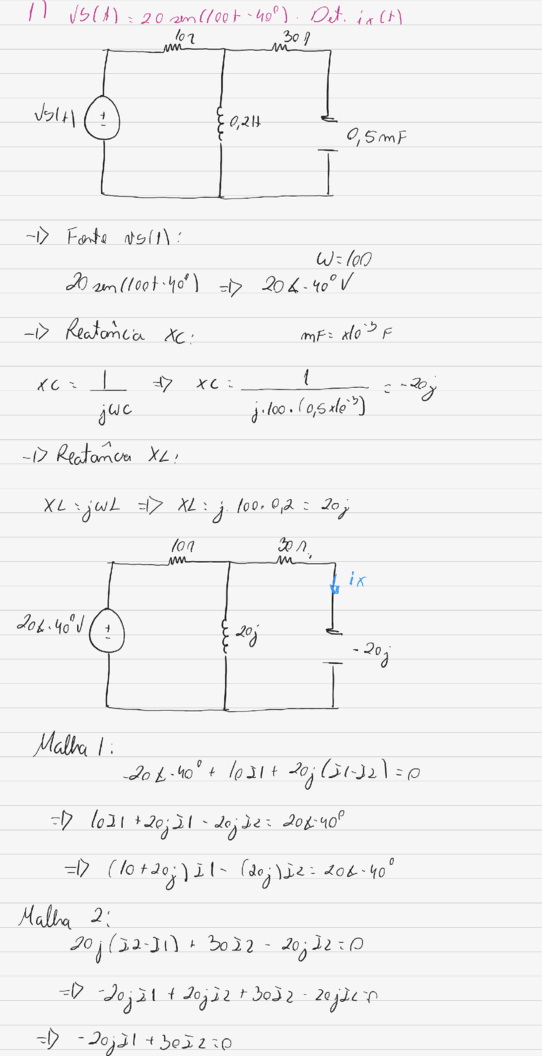 1) vs(t) = 20 sen(100t - 40°). Det. ix(t)
10Ω
30Ω
vs(t)
+
-
0,2H
0,5mF
-|> Fonte vs(t):
W=100
20 sen(100t - 40°) => 20∠-40° V
-|> Reatância XC:
mF = x10⁻³ F
XC = 1/jWC => XC = 1/j.100.(0,5x10⁻³) = -20j
-|> Reatância XL:
XL = jWL => XL = j.100.0,2 = 20j
10Ω
30Ω
ix
20∠-40° V
+
-
20j
-20j
Malha 1:
-20∠-40° + 10I1 + 20j(I1-I2) = 0
=> 10I1 + 20jI1 - 20jI2 = 20∠-40°
=> (10+20j)I1 - (20j)I2 = 20∠-40°
Malha 2:
20j(I2-I1) + 30I2 - 20jI2 = 0
=> -20jI1 + 20jI2 + 30I2 - 20jI2 = 0
=> -20jI1 + 30I2 = 0